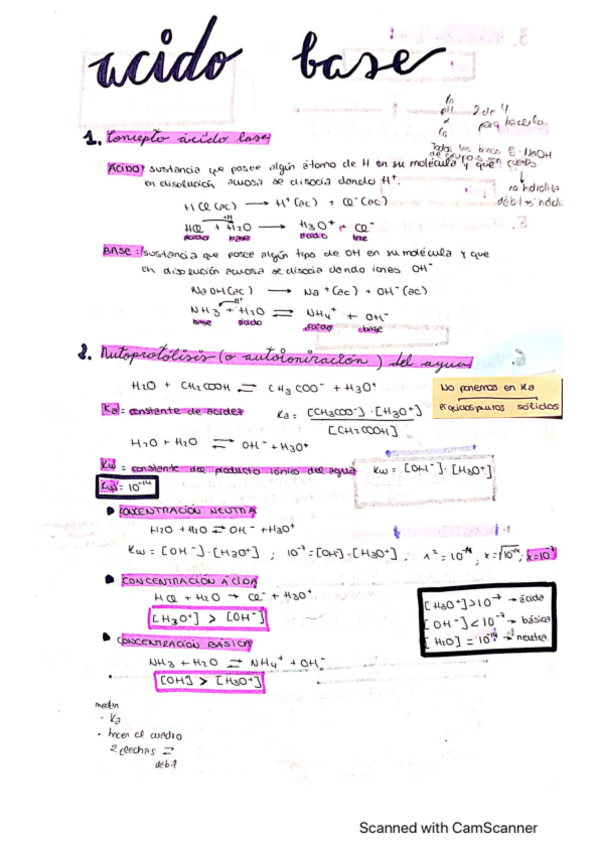 ácido base
Ka
pH 2 de 4
α para hacerlo
Co
1. Concepto ácido base
Todas las bases B: NaOH
no hidroliza
débil sí hidroli
ÁCIDO: sustancia que posee algún átomo de H en su molécula y que
en disolución acuosa se disocia dando H⁺.
HCl (ac) → H⁺ (ac) + Cl⁻ (ac)
HCl + H₂O → H₃O⁺ + Cl⁻
ácido base ácido base
BASE: sustancia que posee algún tipo de OH en su molécula y que
en disolución acuosa se disocia dando iones OH⁻
NaOH(ac) → Na⁺(ac) + OH⁻(ac)
H⁺
NH₃ + H₂O ⇌ NH₄⁺ + OH⁻
base ácido ácido base
2. Autoprotólisis (o autoionización) del agua
H₂O + CH₃COOH ⇌ CH₃COO⁻ + H₃O⁺
No ponemos en Ka
líquidos puros sólidos
Ka = constante de acidez Ka = [CH₃COO⁻]·[H₃O⁺]
[CH₃COOH]
H₂O + H₂O ⇌ OH⁻ + H₃O⁺
Kw = constante del producto iónico del agua Kw = [OH⁻]·[H₃O⁺]
Kw = 10⁻¹⁴
CONCENTRACIÓN NEUTRA
H₂O + H₂O ⇌ OH⁻ + H₃O⁺
Kw = [OH⁻]·[H₃O⁺] ; 10⁻⁷ = [OH]·[H₃O⁺] ; x² = 10⁻¹⁴ ; x = √10⁻¹⁴ ; x = 10⁻⁷
CONCENTRACIÓN ÁCIDA
HCl + H₂O → Cl⁻ + H₃O⁺
[H₃O⁺] > [OH⁻]
[H₃O⁺] > 10⁻⁷ → ácida
[OH⁻] < 10⁻⁷ → básica
[H₂O] = 10⁻¹⁴ → neutra
CONCENTRACIÓN BÁSICA
NH₃ + H₂O ⇌ NH₄⁺ + OH⁻
[OH] > [H₃O⁺]
· Ka
· hacer el cuadro
2 flechas ⇌
débil
Scanned with CamScanner